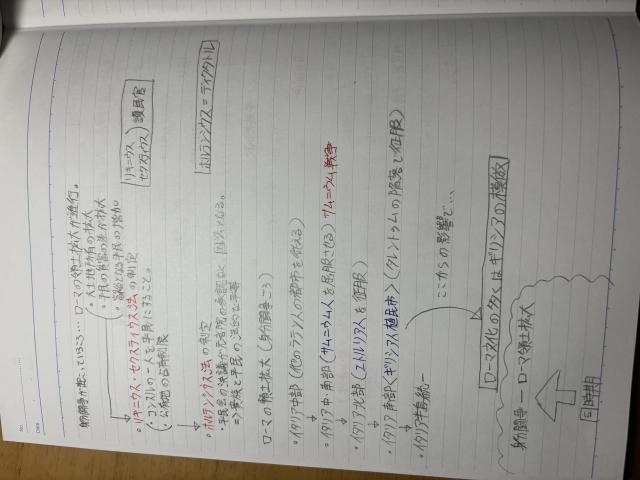 No.
Date
身分闘争が起こっているころ… ローマの領土拡大が進行。
・大土地所有の拡大
・平民の貧富の差が拡大
・となる平民の増加
・リキニウス・セクスティウス法の制定
(・コンスルの一人を平民にすること。
・公有地の占有制限
リキニウス
セクスティウス) 護民官
・ホルテンシウス法の制定
・平民会の決議が元老院の承認なく国法となる。
⇒貴族と平民の法的な平等
ホルテンシウス=ディクタトル
ローマの領土拡大(身分闘争ごろ)
・イタリア中部(他のラテン人の都市を従える)
↓
・イタリア中・南部(サムニウム人を屈服させる) サムニウム戦争
↓
・イタリア北部(エトルリア人を征服)
↓
・イタリア南部〈ギリシア人植民市〉(タレントゥムの陥落で征服)
↓
・イタリア半島統一
ここからの影響で…
ローマ文化の多くはギリシアの模倣
身分闘争 ー ローマ領土拡大
同時期